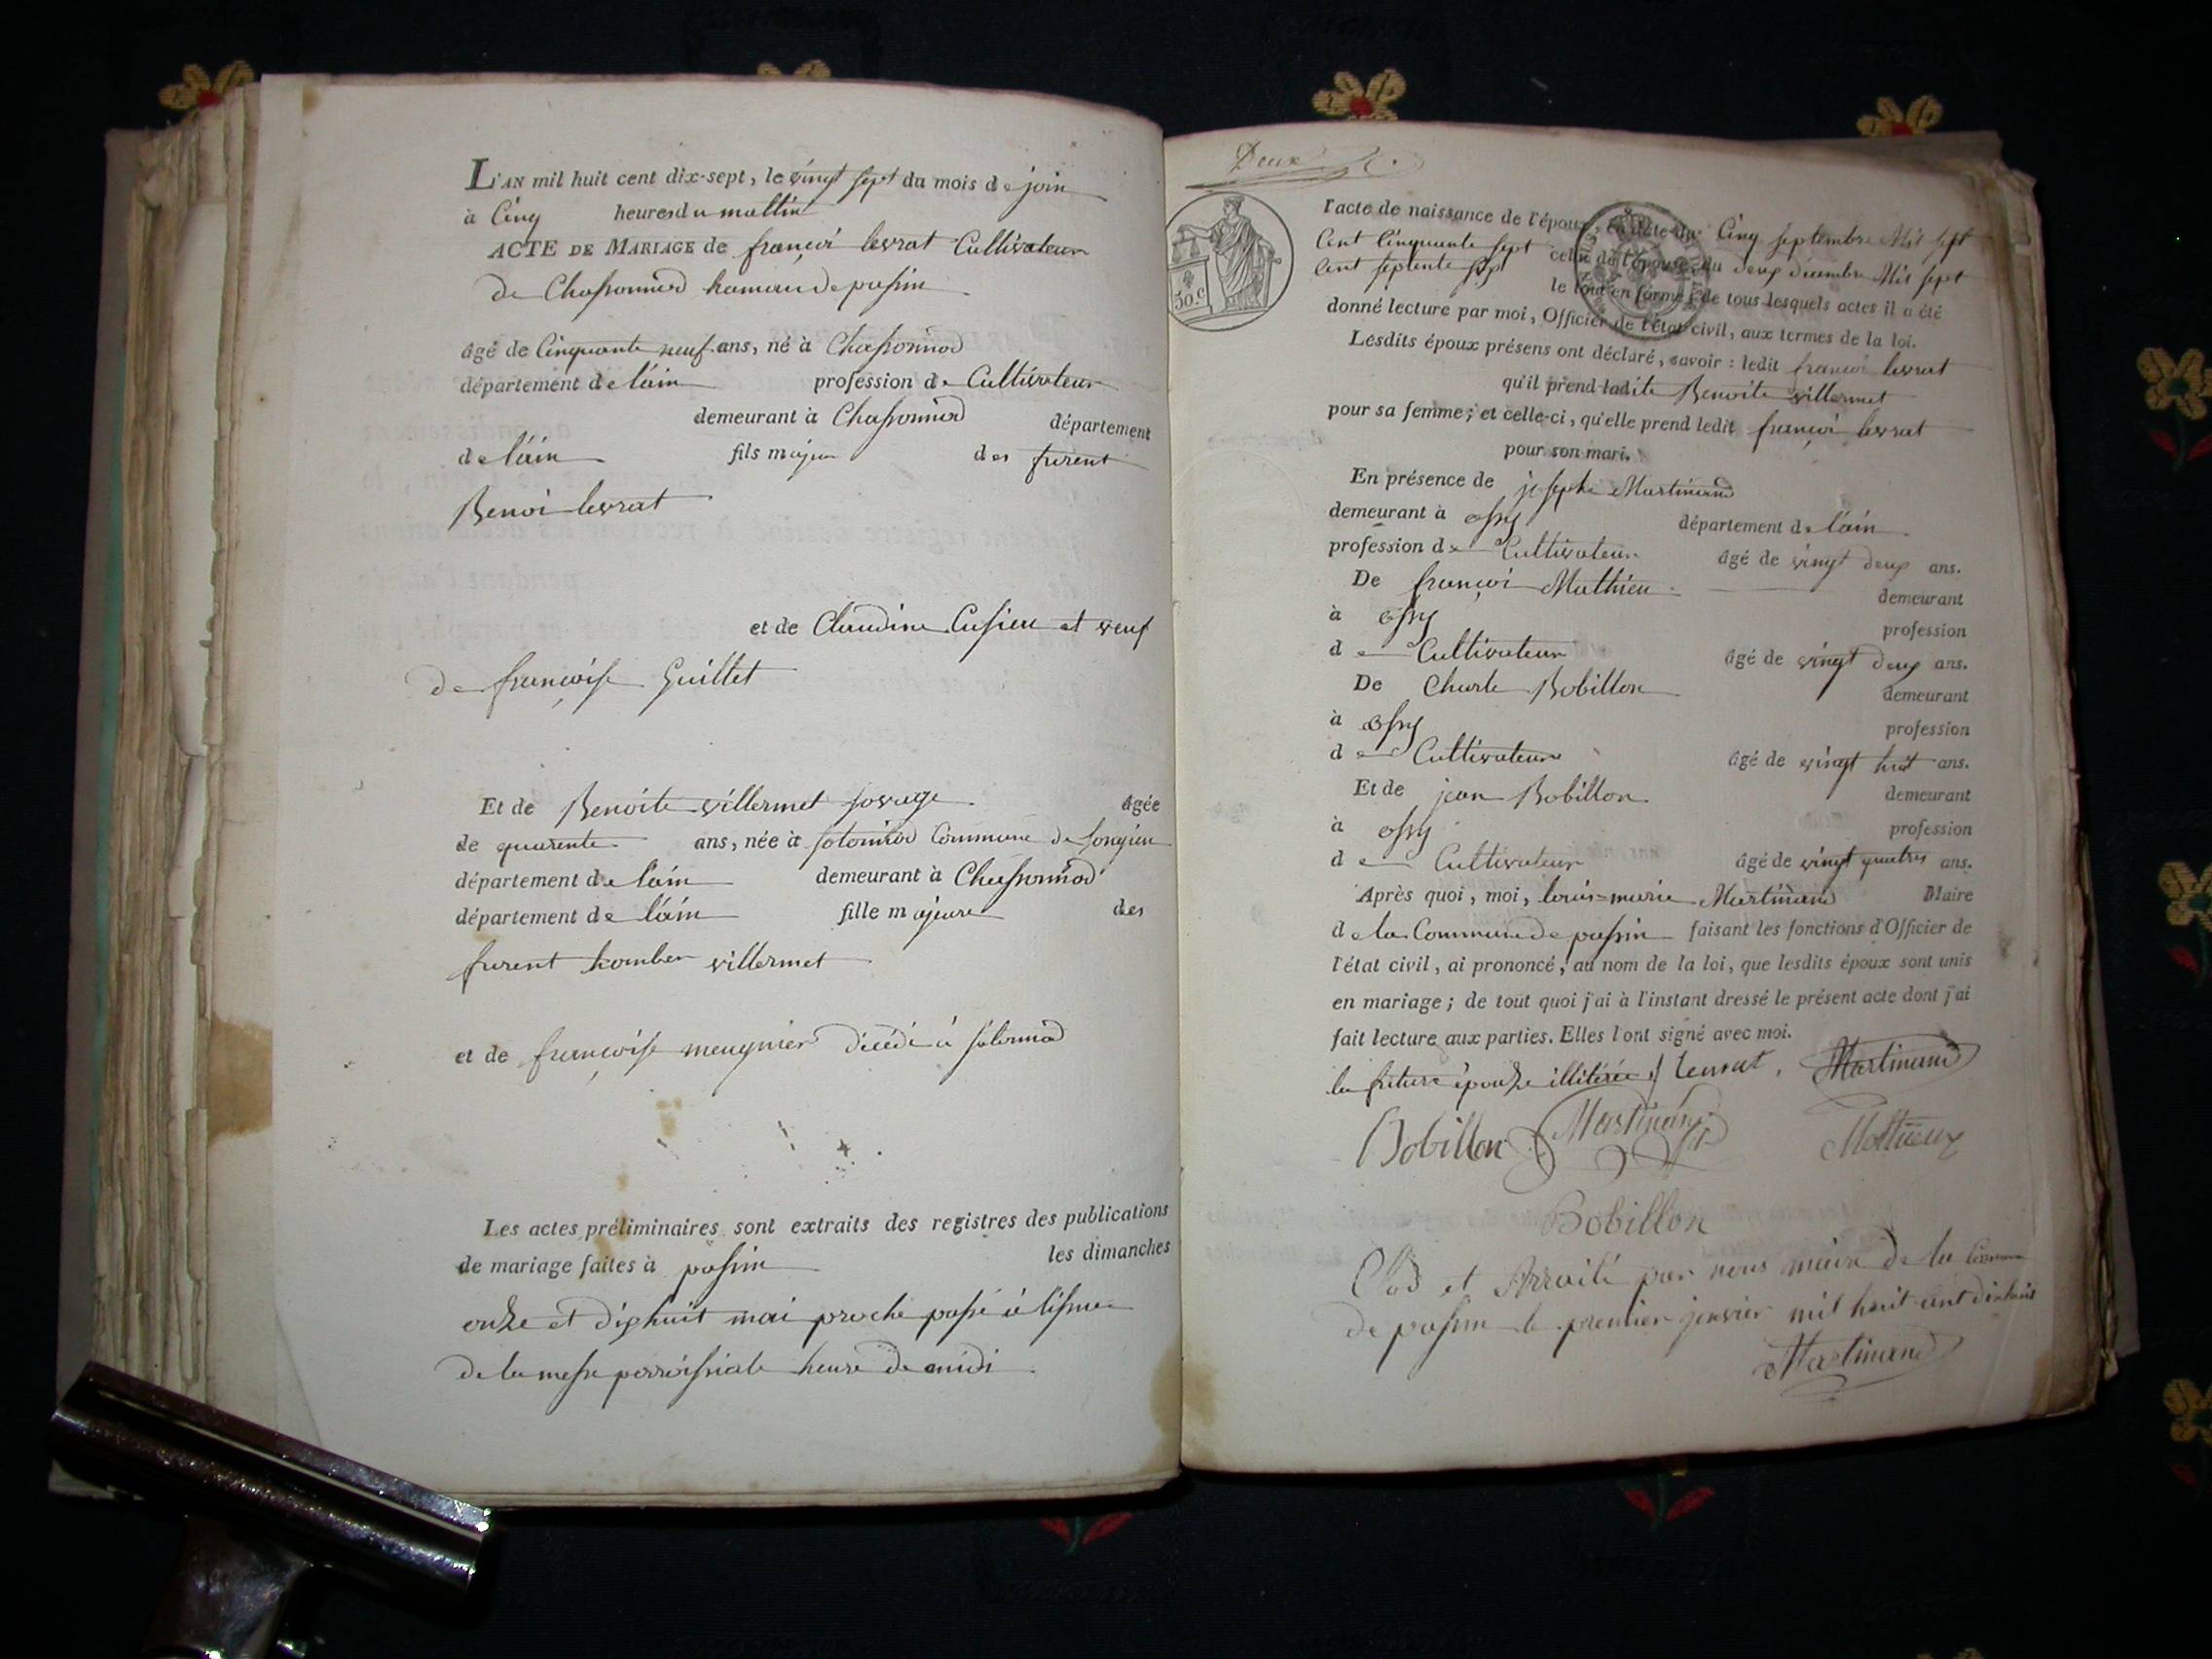 L'AN mil huit cent dix-sept, le vingt sept du mois de join
à Cinq heures du mattin
ACTE DE MARIAGE de françoi levrat Cultivateur
de Chassonnod hamau de passin
âgé de Cinquante neuf ans, né à Chassonnod
département de lain profession de Cultivateur
demeurant à Chassonnod département
de lain fils majeur des furent
Benoi levrat
et de Claudine Cusieu et veuf
de françoise Guillet
Et de Benoite villermet âgée
de quarente ans, née à Commune de songieu
département de lain demeurant à Chassonnod
département de lain fille majeure des
furent homber villermet
et de françoise meugnier décédé à
Les actes préliminaires sont extraits des registres des publications
de mariage faites à passin les dimanches
onze et dixhuit mai proche passé à lissue
de la messe parroissiale heure de midi
Deux
30.c
l'acte de naissance de l'époux, en date du Cinq septembre Mil sept
Cent Cinquante sept celui de l'épouse du deux décembre Mil sept
Cent septente sept le tout en forme; de tous lesquels actes il a été
donné lecture par moi, Officier de l'état civil, aux termes de la loi.
Lesdits époux présens ont déclaré, savoir: ledit françoi levrat
qu'il prend ladite Benoite villermet
pour sa femme; et celle-ci, qu'elle prend ledit françoi levrat
pour son mari.
En présence de josephe Martinand
demeurant à ossy département de lain
profession de Cultivateur âgé de vingt deux ans.
De françoi Mathieu demeurant
à ossy profession
de Cultivateur âgé de vingt deux ans.
De Charle Bobillon demeurant
à ossy profession
de Cultivateur âgé de vingt huit ans.
Et de jean Bobillon demeurant
à ossy profession
de Cultivateur âgé de vingt quatres ans.
Après quoi, moi, louis=marie Martinand Maire
de la Commune de passin faisant les fonctions d'Officier de
l'état civil, ai prononcé, au nom de la loi, que lesdits époux sont unis
en mariage; de tout quoi j'ai à l'instant dressé le présent acte dont j'ai
fait lecture aux parties. Elles l'ont signé avec moi.
la future épouze illitérée f levrat, Martinand
Bobillon Martinand Mathieux
Bobillon
Clos et Arraité par nous maire de la Commune
de passin le premier janvier mil huit cent dixhuit
Martinand